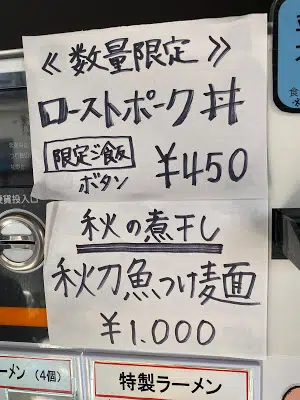 ≪数量限定≫
ローストポーク丼
限定ご飯
ボタン
¥450
秋の煮干し
秋刀魚つけ麺
¥1.000
硬貨投入口
ーメン (4個)
特製ラーメン